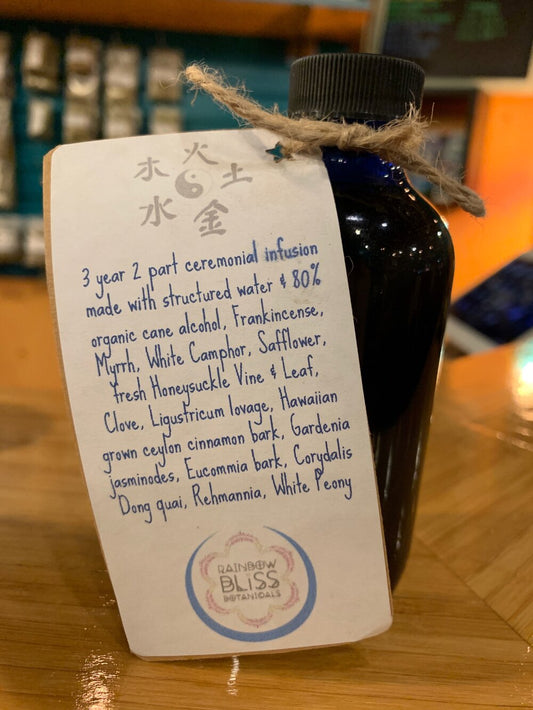 火
木 土
水 金
3 year 2 part ceremonial infusion
made with structured water & 80%
organic cane alcohol, Frankincense,
Myrrh, White Camphor, Safflower,
fresh Honeysuckle Vine & Leaf,
Clove, Ligustricum lovage, Hawaiian
grown ceylon cinnamon bark, Gardenia
jasminodes, Eucommia bark, Corydalis
Dong quai, Rehmannia, White Peony
RAINBOW
BLISS
BOTANICALS